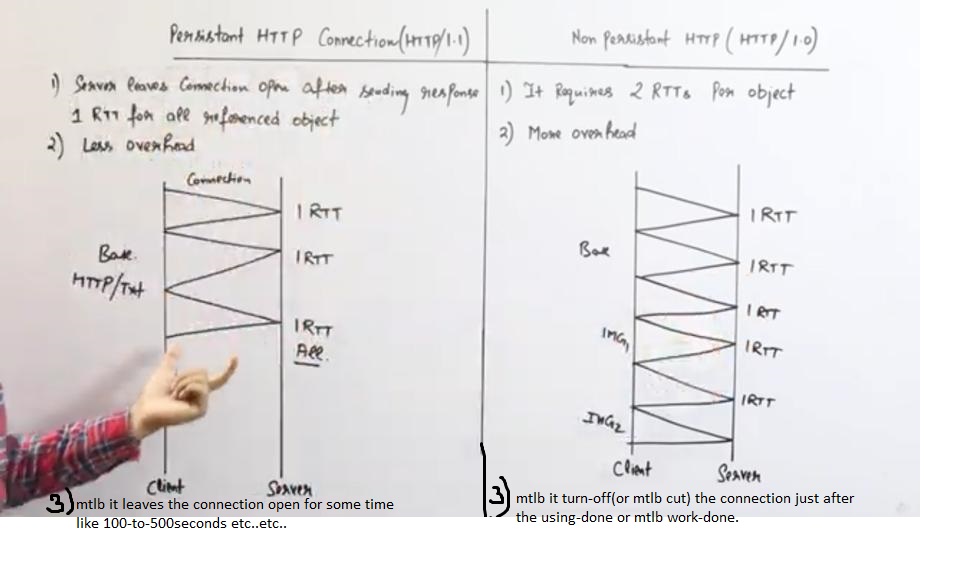 Persistant HTTP Connection(HTTP/1.1)
1) Server leaves Connection open after sending response
1 RTT for all referenced object
2) Less overhead
Connection
1 RTT
Base
HTTP/Txt
1 RTT
1 RTT
All
Client Server
3) mtlb it leaves the connection open for some time
like 100-to-500seconds etc..etc..
Non Persistant HTTP (HTTP/1.0)
1) It Requires 2 RTTs Per object
2) More overhead
1 RTT
Base
1 RTT
1 RTT
IMG1
1RTT
1RTT
IMG2
Client Server
3) mtlb it turn-off(or mtlb cut) the connection just after
the using-done or mtlb work-done.